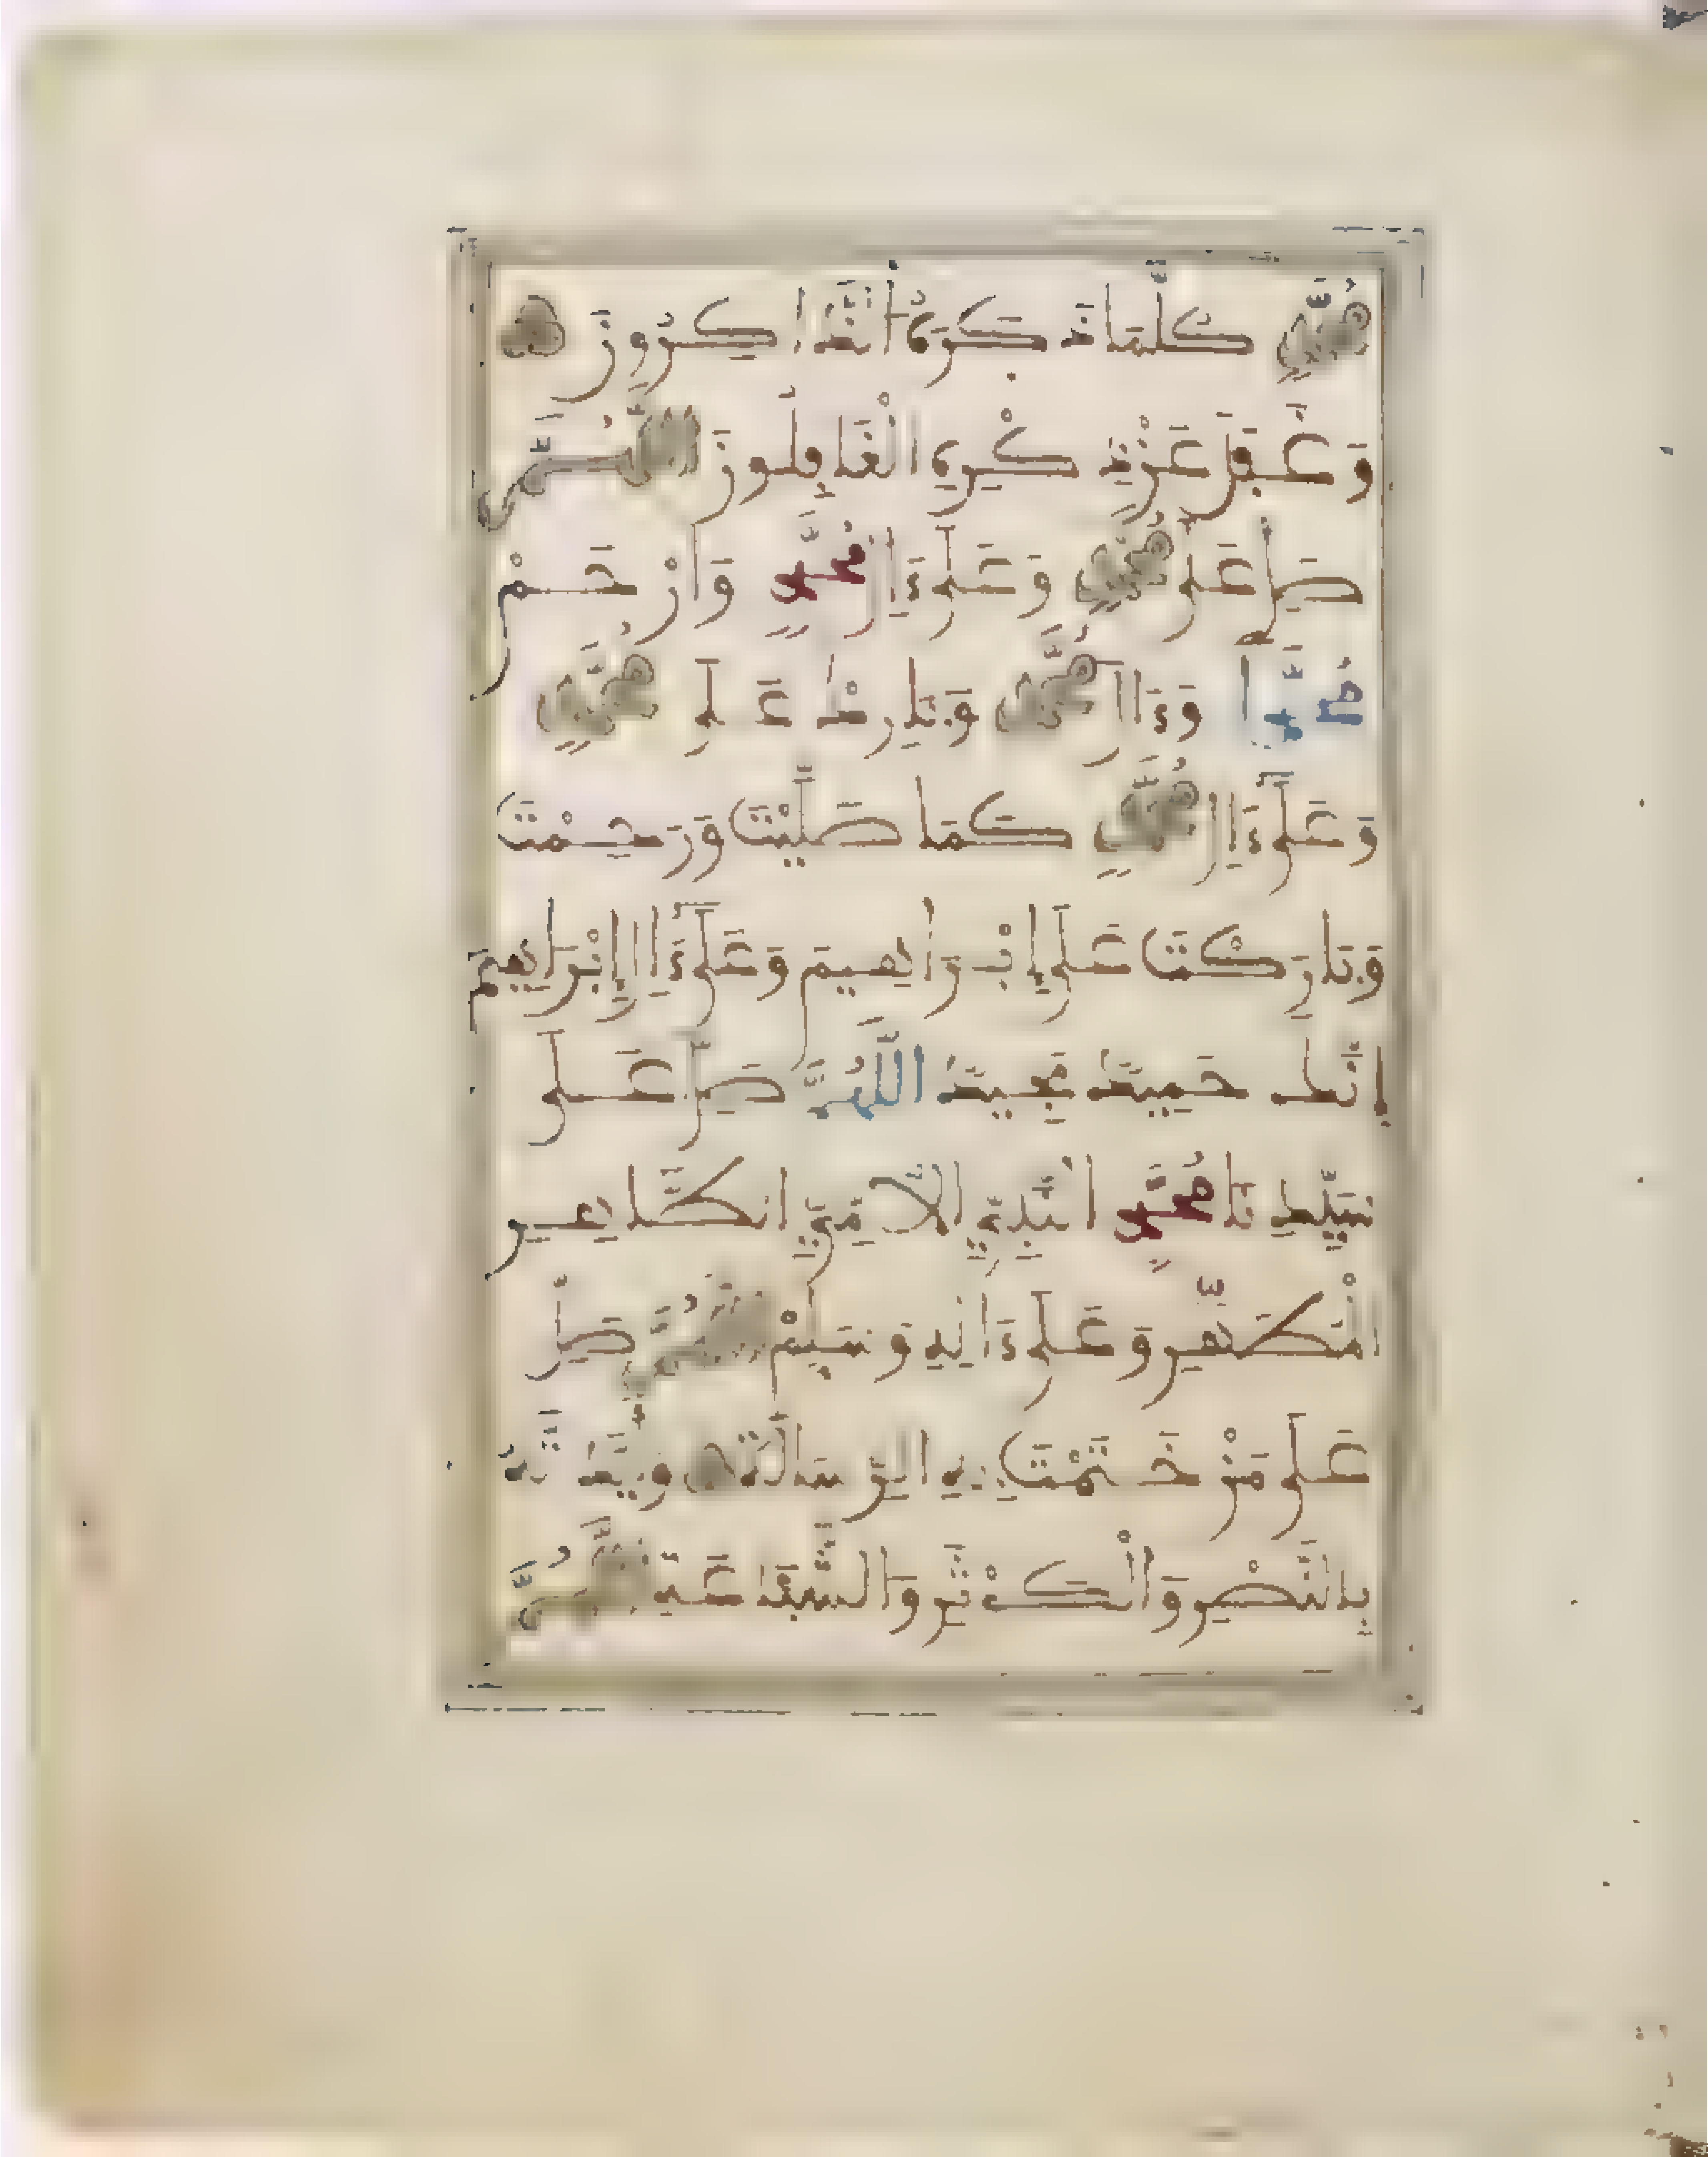 مُحَمَّدٍ كُلَّمَا ذَكَرَهُ الذَّاكِرُونَ
وَغَفَلَ عَنْ ذِكْرِهِ الْغَافِلُونَ اللَّهُمَّ
صَلِّ عَلَى مُحَمَّدٍ وَعَلَىٰ ءَالِ مُحَمَّدٍ وَارْحَمْ
مُحَمَّدًا وَءَالَ مُحَمَّدٍ وَبَارِكْ عَلَى مُحَمَّدٍ
وَعَلَىٰ ءَالِ مُحَمَّدٍ كَمَا صَلَّيْتَ وَرَحِمْتَ
وَبَارَكْتَ عَلَى إِبْرَاهِيمَ وَعَلَىٰ ءَالِ إِبْرَاهِيمَ
إِنَّكَ حَمِيدٌ مَجِيدٌ اللَّهُمَّ صَلِّ عَلَى
نَبِيِّكَ مُحَمَّدٍ النَّبِيِّ الْأُمِّيِّ الطَّاهِرِ
الْمُطَهَّرِ وَعَلَى ءَالِهِ وَسَلِّمْ اللَّهُمَّ صَلِّ
عَلَى مَنْ خَتَمْتَ بِهِ الرِّسَالَةَ وَأَيَّدْتَهُ
بِالنَّصْرِ وَالْكَوْثَرِ وَالشَّفَاعَةِ اللَّهُمَّ